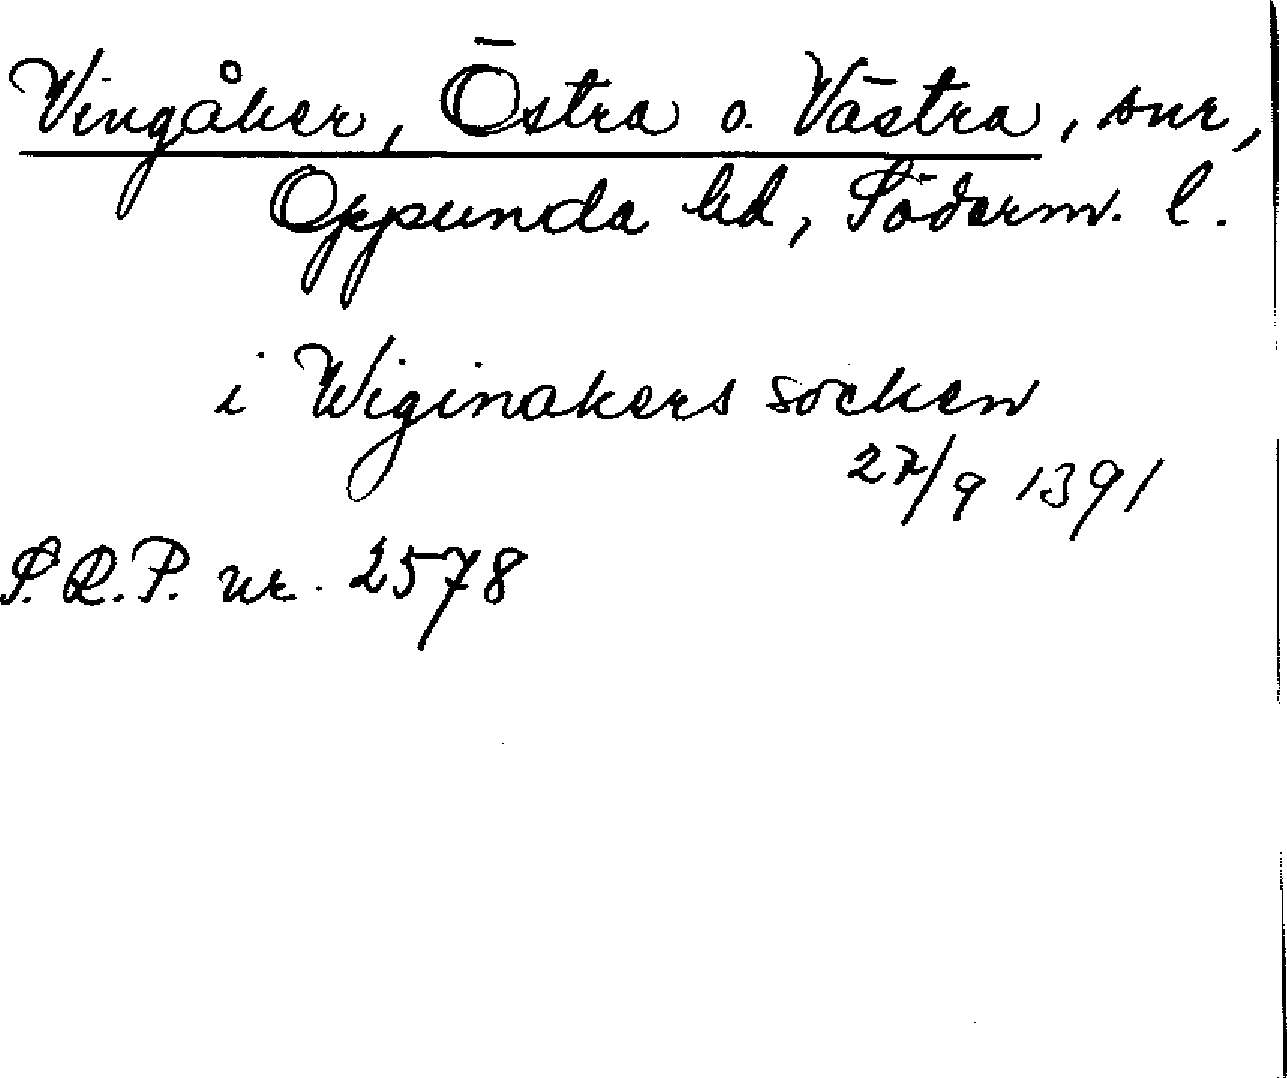 Vingåker, Östra o. Västra, snr,
Oppunda hd, Söderm. l.
i Wiginakers socken
27/9 1391
S.R.P. nr. 2578